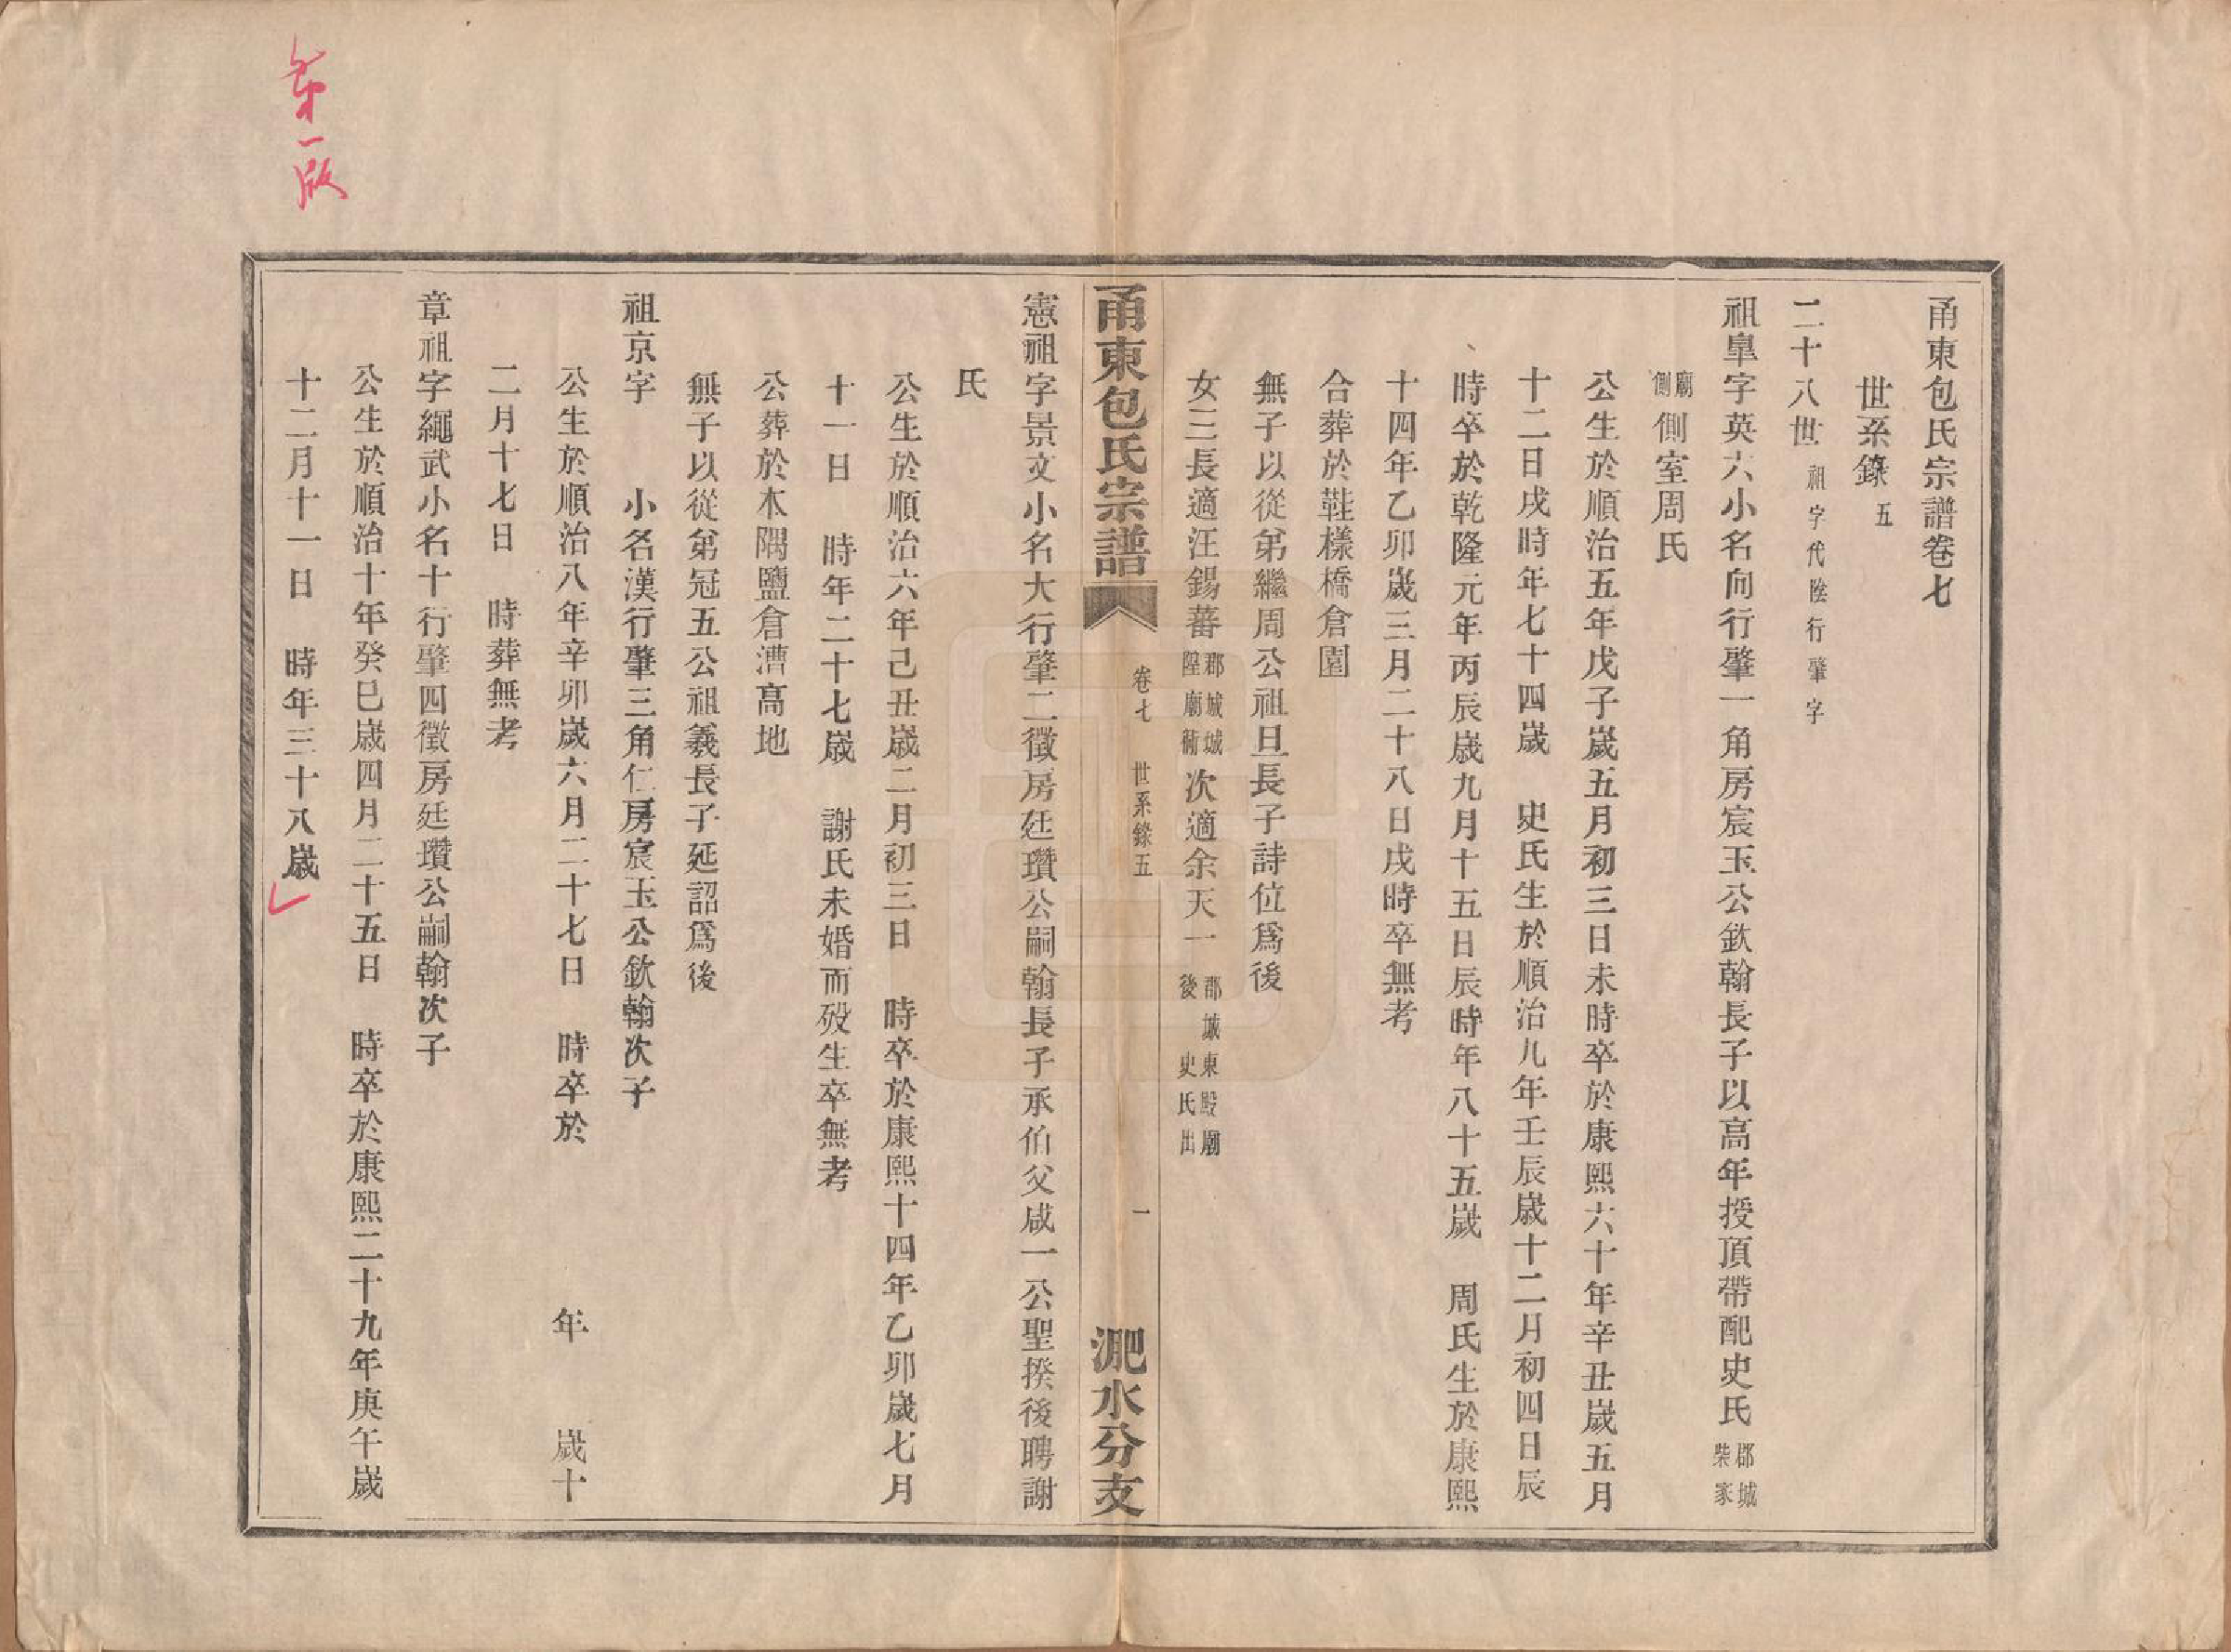 甬東包氏宗譜卷七
世系錄五
二十八世祖字代陞行肇字
祖臯字英六小名向行肇一角房宸玉公欽翰長子以高年授頂帶配史氏郡城柴家
廟側側室周氏
公生於順治五年戊子歲五月初三日未時卒於康熙六十年辛丑歲五月
十二日戌時年七十四歲　史氏生於順治九年壬辰歲十二月初四日辰
時卒於乾隆元年丙辰歲九月十五日辰時年八十五歲　周氏生於康熙
十四年乙卯歲三月二十八日戌時卒無考
合葬於鞋樣橋倉園
無子以從弟繼周公祖旦長子詩位爲後
女二長適汪錫蕃郡城城隍廟衕次適余天一郡城東殿廟後史氏出
甬東包氏宗譜　卷七　世系錄五　一　淝水分支
憲祖字景文小名大行肇二徵房廷瓚公嗣翰長子承伯父咸一公聖揆後聘謝
氏
公生於順治六年己丑歲二月初三日　時卒於康熙十四年乙卯歲七月
十一日　時年二十七歲　謝氏未婚而歿生卒無考
公葬於木隅鹽倉漕高地
無子以從弟冠五公祖義長子延詔爲後
祖京字　　小名漢行肇三角仁房宸玉公欽翰次子
公生於順治八年辛卯歲六月二十七日　時卒於　　　年　　歲十
二月十七日　時葬無考
章祖字繩武小名十行肇四徵房廷瓚公嗣翰次子
公生於順治十年癸巳歲四月二十五日　時卒於康熙二十九年庚午歲
十二月十一日　時年三十八歲
第一版